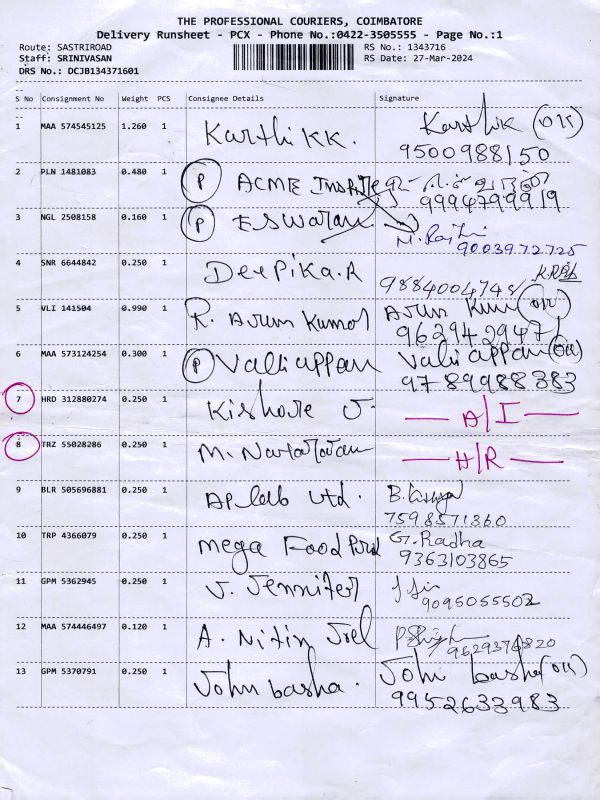 THE PROFESSIONAL COURIERS, COIMBATORE
Delivery Runsheet - PCX - Phone No.:0422-3505555 - Page No.:1
Route: SASTRIROAD
Staff: SRINIVASAN
DRS No.: DCJB134371601
RS No.: 1343716
RS Date: 27-Mar-2024
S No Consignment No Weight PCS Consignee Details Signature
1 MAA 574545125 1.260 1 Karthi KK. Karthik (
9500988150
2 PLN 1481083 0.480 1 P ACME Institute
9994799919
3 NGL 2508158 0.160 1 P ESWaran
9003972725
4 SNR 6644842 0.250 1 DeePika.R 9884004748
5 VLI 141504 0.990 1 R. Arun Kumar Arun Kum
9629429471
6 MAA 573124254 0.300 1 P Valliappan Valliappan
9789988383
7 HRD 312880274 0.250 1 Kishore J. A/I
8 TRZ 55028286 0.250 1 M. Natarajan H/R
9 BLR 505696881 0.250 1 AP lab Ltd. B.
7598571360
10 TRP 4366079 0.250 1 Mega Food Prod G. Radha
9363103865
11 GPM 5362945 0.250 1 J. Jennifer
9095055502
12 MAA 574446497 0.120 1 A. Nitin Joel
13 GPM 5370791 0.250 1 John basha. John basha
9952633983